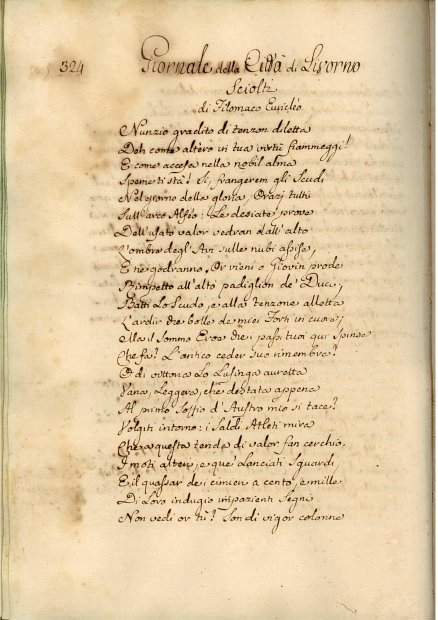 324
Giornale della Città di Livorno
Sciolti
di Filomaco Euricléo
Nunzio gradito di tenzon diletta
Deh come altero in tua virtù fiammeggi!
E come accesa nella nobil alma
Speme ti sta! Sì, frangerem gli Scudi
Nel giorno della gloria, Orazj tutti
Sull'arco Alféo: Le desiate prove
Dell'usato valor vedran dall'alto
L'ombre degl'Avi sulle nubi assise,
E ne godranno. Or vieni o Giovin prode
Rimpetto all'alto padiglion de' Duci,
Batti lo Scudo, e alla tenzone alletta
L'ardir che bolle de miei Forti in cuore,
Ma il Sommo Eroe che i passi tuoi qui spinse
Che fa? L'antico ceder suo rimembra?
O di vittoria Lo Lusinga auretta
Vana, Leggera, che destata appena
Al primo Soffio d'Austro mio si tace?
Volgiti intorno: i Saldi Atleti mira
Che a questa tenda di valor fan cerchio.
I moti alteri, e que' Lanciati Sguardi,
E il quassar dei cimieri a cento, e mille
Di Loro indugio impazienti Segni
Non vedi or tù? Son di vigor colonne